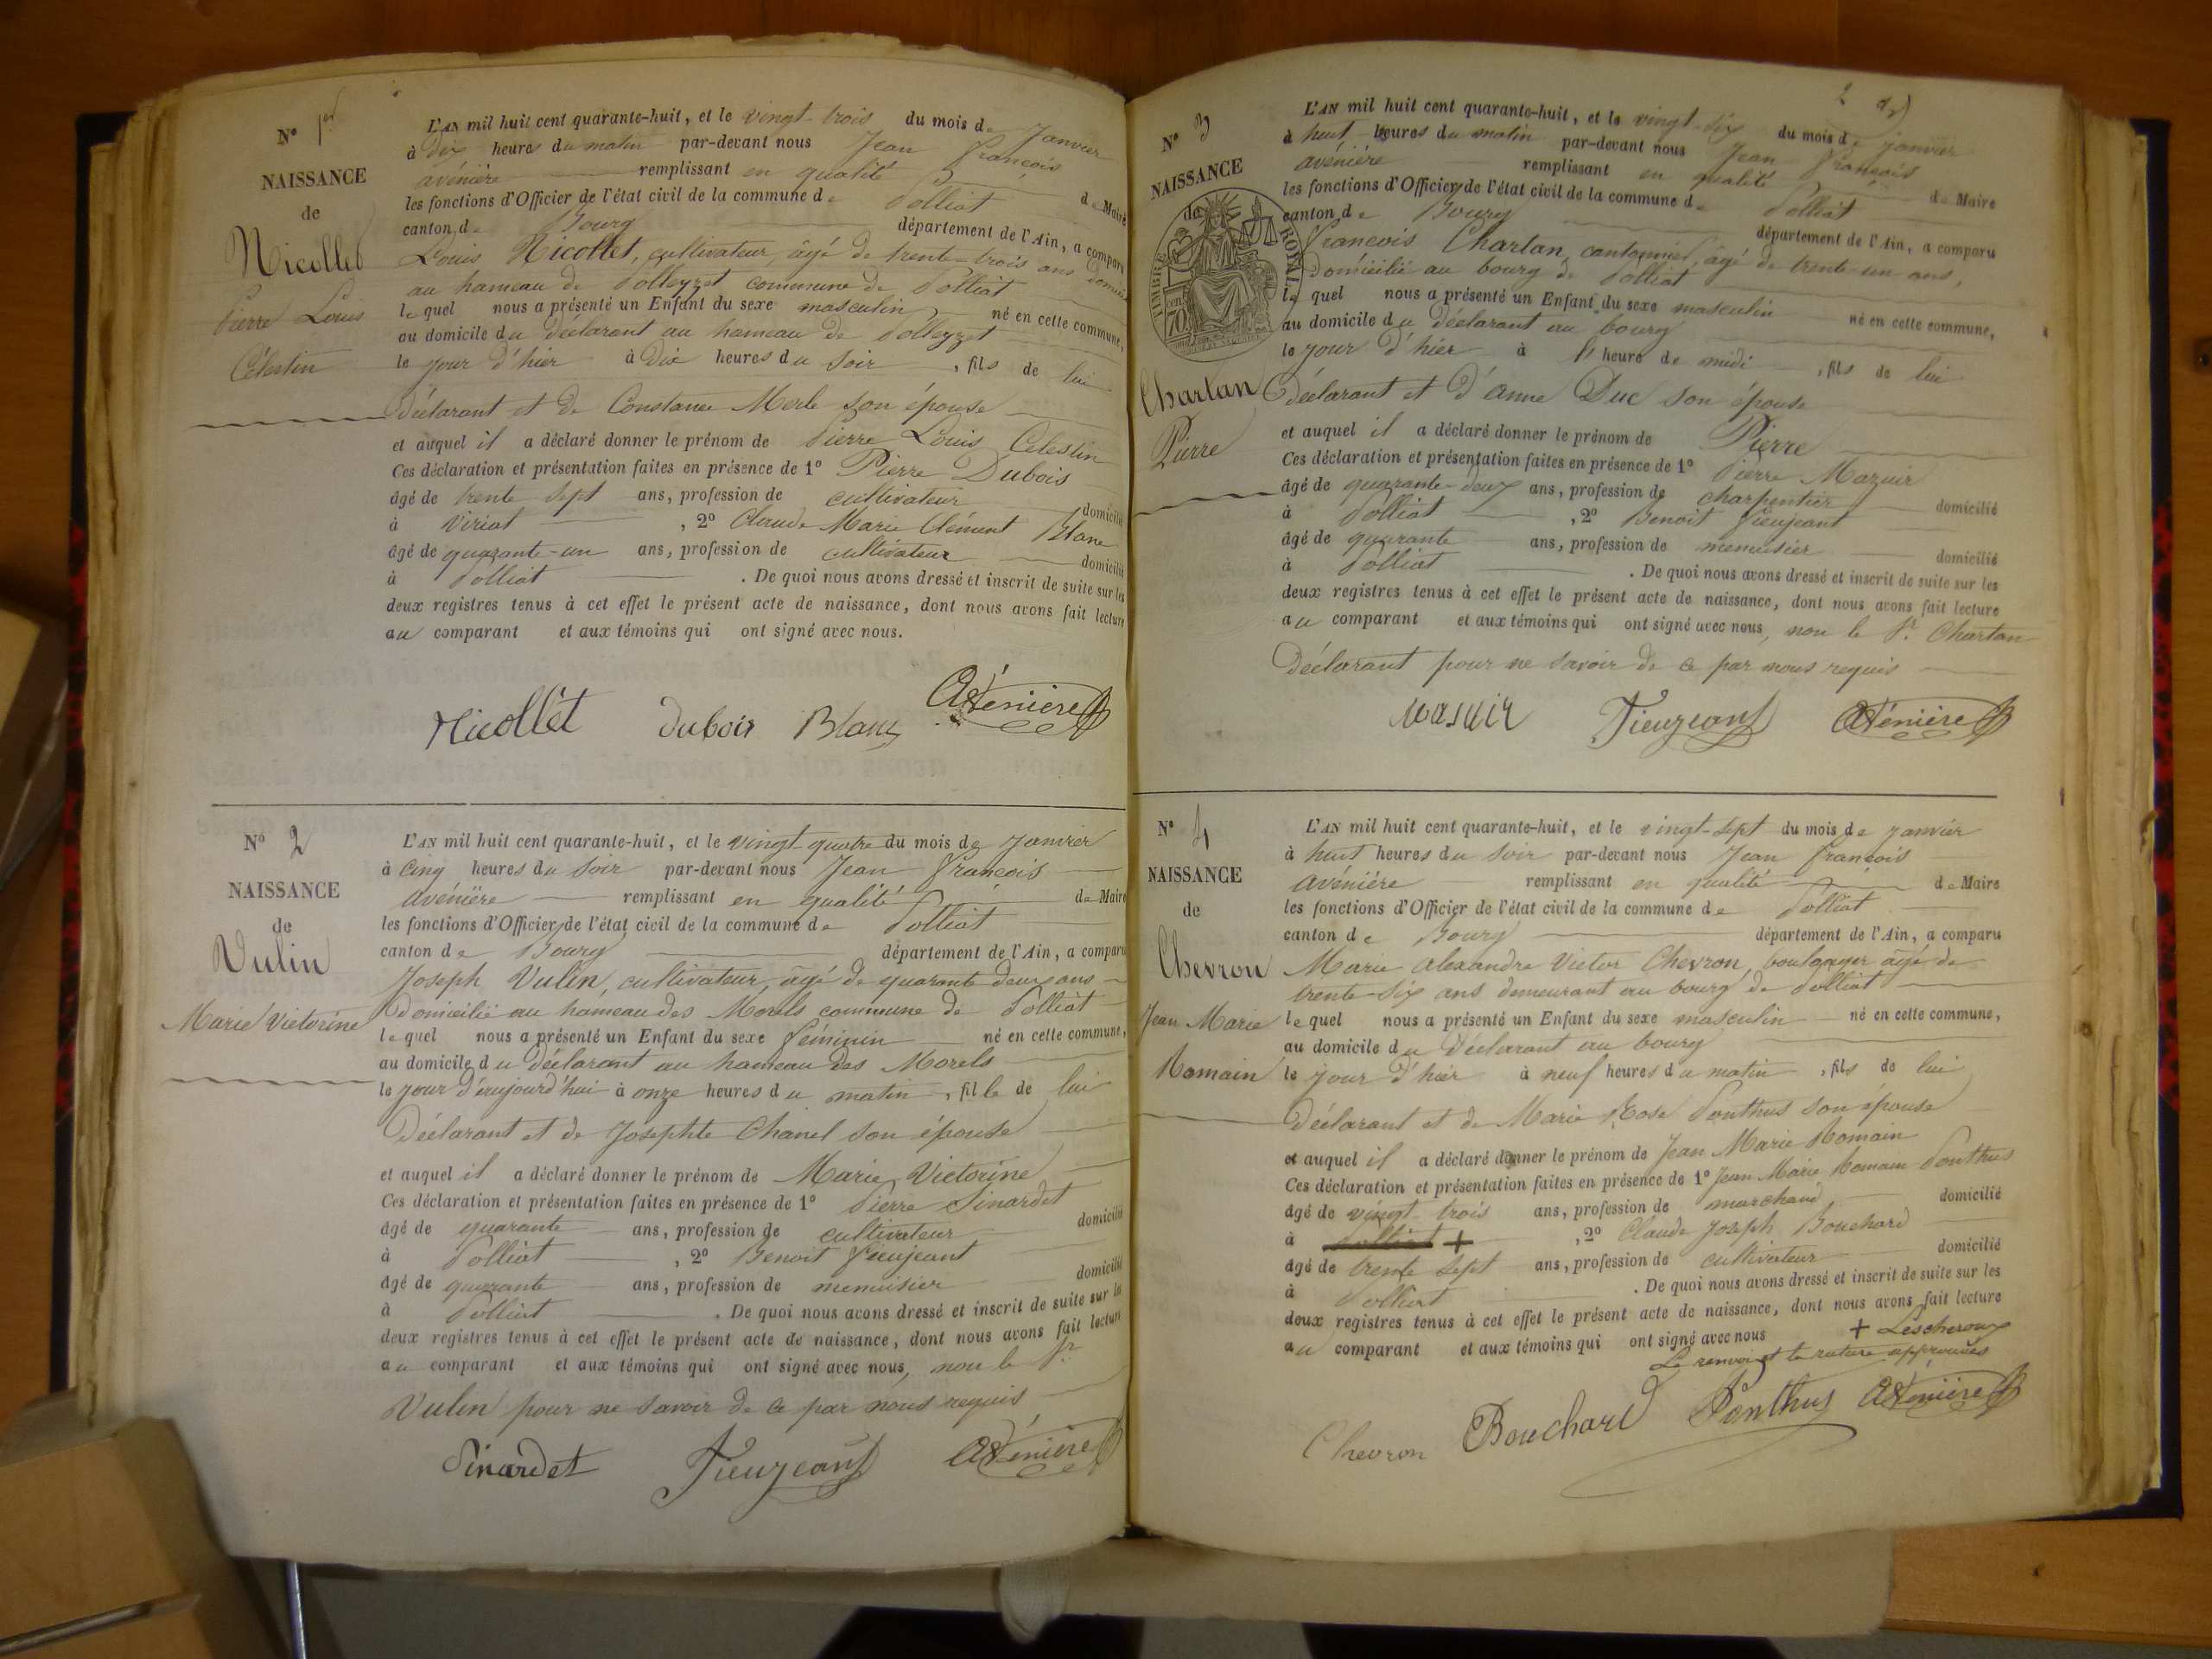 N° 1er
NAISSANCE
de
Nicollet
Pierre Louis
Célestin
L'AN mil huit cent quarante-huit, et le vingt-trois du mois de Janvier
à dix heures du matin par-devant nous Jean François
avénière remplissant en qualité de Maire
les fonctions d'Officier de l'état civil de la commune de Polliat
canton de Bourg département de l'Ain, a comparu
Louis Nicollet, cultivateur, âgé de trente-trois ans domicilié
au hameau de Polleyzet commune de Polliat
le quel nous a présenté un Enfant du sexe masculin né en cette commune,
au domicile du déclarant au hameau de Polleyzet
le jour d'hier à dix heures du soir, fils de lui
déclarant et de Constance Merle son épouse
et auquel il a déclaré donner le prénom de Pierre Louis Célestin
Ces déclaration et présentation faites en présence de 1° Pierre Dubois
âgé de trente sept ans, profession de cultivateur domicilié
à Viriat, 2° Claude Marie Clément Blanc
âgé de quarante-un ans, profession de cultivateur domicilié
à Polliat. De quoi nous avons dressé et inscrit de suite sur les
deux registres tenus à cet effet le présent acte de naissance, dont nous avons fait lecture
au comparant et aux témoins qui ont signé avec nous.
Nicollet Dubois Blanc Avénière
N° 2
NAISSANCE
de
Vulin
Marie Victorine
L'AN mil huit cent quarante-huit, et le vingt-quatre du mois de Janvier
à cinq heures du soir par-devant nous Jean François
avénière remplissant en qualité de Maire
les fonctions d'Officier de l'état civil de la commune de Polliat
canton de Bourg département de l'Ain, a comparu
Joseph Vulin, cultivateur, âgé de quarante deux ans
domicilié au hameau des Morels commune de Polliat
le quel nous a présenté un Enfant du sexe féminin né en cette commune,
au domicile du déclarant au hameau des Morels
le jour d'aujourd'hui à onze heures du matin, fille de lui
déclarant et de Josephte Chanel son épouse
et auquel il a déclaré donner le prénom de Marie Victorine
Ces déclaration et présentation faites en présence de 1° Pierre Sinardet
âgé de quarante ans, profession de cultivateur domicilié
à Polliat, 2° Benoit Fieujeant
âgé de quarante ans, profession de menuisier domicilié
à Polliat. De quoi nous avons dressé et inscrit de suite sur les
deux registres tenus à cet effet le présent acte de naissance, dont nous avons fait lecture
au comparant et aux témoins qui ont signé avec nous, non le Sr
Vulin pour ne savoir de ce par nous requis
Sinardet Fieujeant Avénière
2
N° 3
NAISSANCE
de
TIMBRE ROYAL
70
Charlan
Pierre
L'AN mil huit cent quarante-huit, et le vingt-six du mois de janvier
à huit heures du matin par-devant nous Jean François
avénière remplissant en qualité de Maire
les fonctions d'Officier de l'état civil de la commune de Polliat
canton de Bourg département de l'Ain, a comparu
François Charlan, cantonnier, âgé de trente-un ans,
domicilié au bourg de Polliat
le quel nous a présenté un Enfant du sexe masculin né en cette commune,
au domicile du déclarant au bourg
le jour d'hier à heure de midi, fils de lui
déclarant et d'anne Duc son épouse
et auquel il a déclaré donner le prénom de Pierre
Ces déclaration et présentation faites en présence de 1° Pierre Mazuir
âgé de quarante-deux ans, profession de charpentier domicilié
à Polliat, 2° Benoit Fieujeant
âgé de quarante ans, profession de menuisier domicilié
à Polliat. De quoi nous avons dressé et inscrit de suite sur les
deux registres tenus à cet effet le présent acte de naissance, dont nous avons fait lecture
au comparant et aux témoins qui ont signé avec nous, non le Sr Charlan
déclarant pour ne savoir de ce par nous requis
Masuir Fieujeant Avénière
N° 4
NAISSANCE
de
Chevron
Jean Marie
Romain
L'AN mil huit cent quarante-huit, et le vingt-sept du mois de janvier
à huit heures du soir par-devant nous Jean François
avénière remplissant en qualité de Maire
les fonctions d'Officier de l'état civil de la commune de Polliat
canton de Bourg département de l'Ain, a comparu
Marie alexandre Victor Chevron, boulanger âgé de
trente-six ans demeurant au bourg de Polliat
le quel nous a présenté un Enfant du sexe masculin né en cette commune,
au domicile du déclarant au bourg
le jour d'hier à neuf heures du matin, fils de lui
déclarant et de Marie Rose Ponthus son épouse
et auquel il a déclaré donner le prénom de Jean Marie Romain
Ces déclaration et présentation faites en présence de 1° Jean Marie Romain Ponthus
âgé de vingt-trois ans, profession de marchand, domicilié
à Polliat +, 2° Claude Joseph Bouchard
âgé de trente sept ans, profession de cultivateur domicilié
à Polliat. De quoi nous avons dressé et inscrit de suite sur les
deux registres tenus à cet effet le présent acte de naissance, dont nous avons fait lecture
au comparant et aux témoins qui ont signé avec nous + Lescheroux
Le renvoi et la rature approuvés
Chevron Bouchard Ponthus Avénière